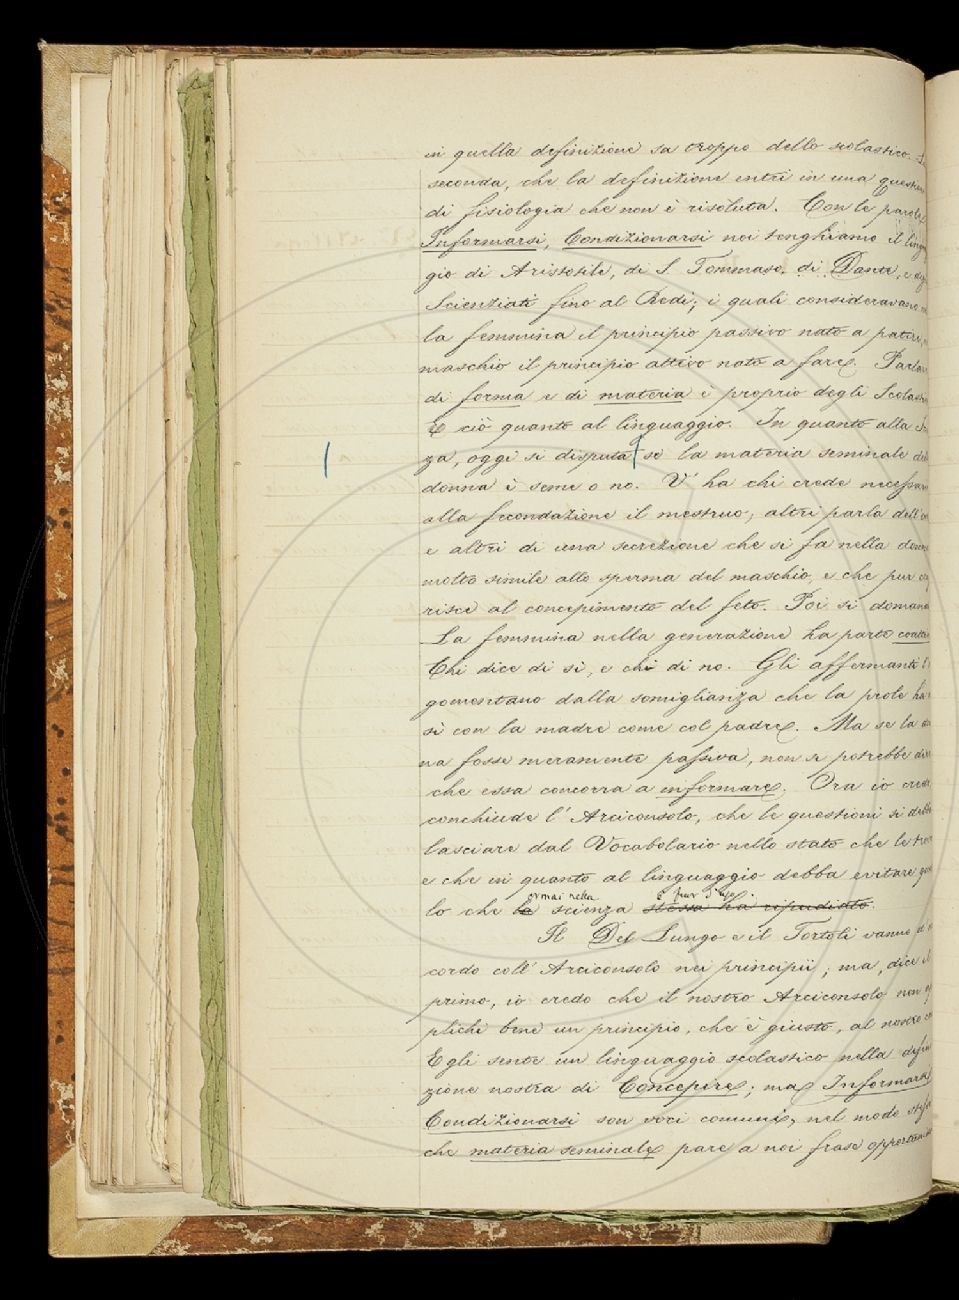 in quella definizione sa troppo dello scolastico. La
seconda, che la definizione entri in una question
di fisiologia che non è risoluta. Con le parole
Informarsi, Condizionarsi noi tenghiamo il lingu
gio di Aristotile, di S. Tommaso, di Dante, e degl
Scienziati fino al Redi; i quali consideravano
la femmina il principio passivo nato a patire,
maschio il principio attivo nato a fare. Parlar
di forma e di materia è proprio degli Scolast
E ciò quanto al linguaggio. In quanto alla
za, oggi si disputa se la materia seminale del
donna è seme o no. V'ha chi crede necessar
alla fecondazione il mestruo; altri parla dell'
e altri di una secrezione che si fa nella don
molto simile allo sperma del maschio, e che pur
risce al concepimento del feto. Poi si doman
La femmina nella generazione ha parte coatti
Chi dice di sì, e chi di no. Gli affermanti
gomentano dalla somiglianza che la prole ha
sì con la madre come col padre. Ma se la
na fosse meramente passiva, non si potrebbe dir
che essa concorra a informare. Ora io cred
conchiude l'Arciconsolo, che le questioni si debb
lasciare dal Vocabolario nello stato che le trov
e che in quanto al linguaggio debba evitare quel
ormai nella è fuor d'uso.
lo che la scienza stessa ha ripudiato.
Il Del Lungo e il Tortoli vanno d'
cordo coll'Arciconsolo nei principii; ma, dice il
primo, io credo che il nostro Arciconsolo non
plichi bene un principio, che è giusto, al nostro
Egli sente un linguaggio scolastico nella defin
zione nostra di Concepire; ma Informarsi
Condizionarsi son voci comuni, nel modo stess
che materia seminale pare a noi frase opportun